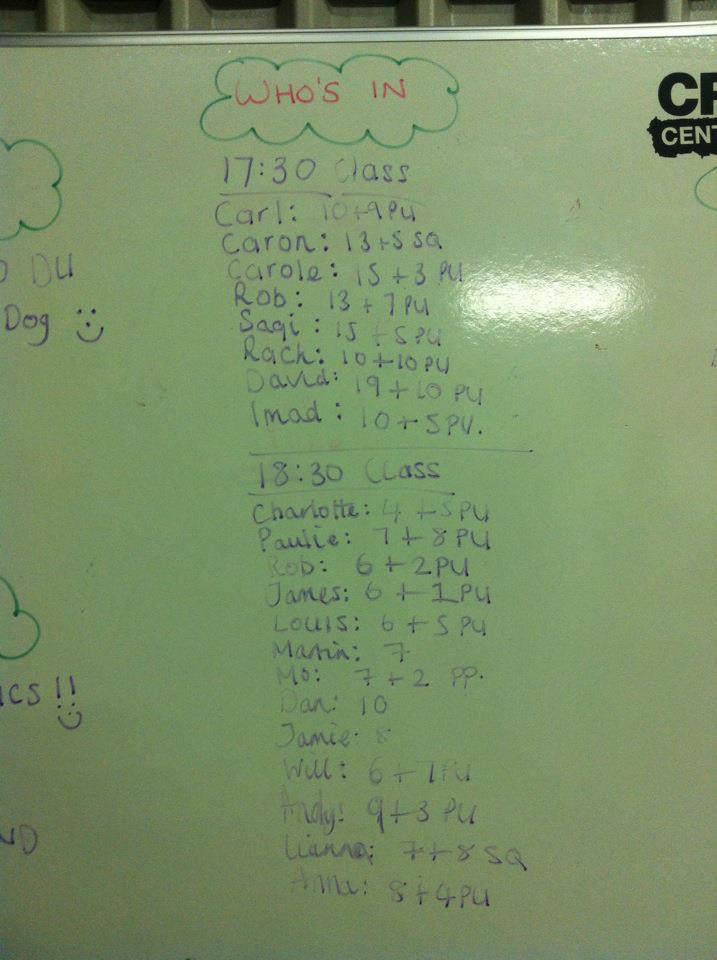 WHO'S IN
17:30 Class
Carl: 10+9PU
Caron: 13+5 SQ
Carole: 15 + 3 PU
Rob: 13 + 7PU
Saqi: 15 + 5PU
Rach: 10+10PU
David: 19+10 PU
Imad: 10+5PU.
18:30 Class
Charlotte: 4 +5PU
Paulie: 7+8PU
Rob: 6+2PU
James: 6 + 1PU
Louis: 6+5 PU
Martin: 7
Mo: 7+2 PP.
Dan: 10
Jamie: 8
Will: 6+7PU
Andy: 9+3 PU
Lianna: 7+8 SQ
Anna: 8+4PU
DU
Dog
ICS!!
ND
CR
CENT